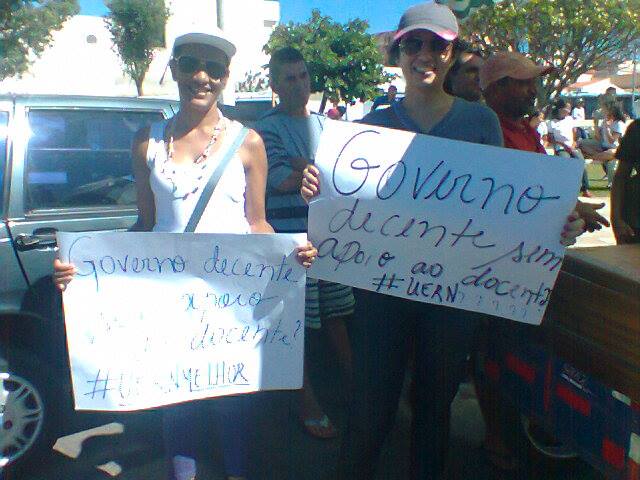 Governo decente
apoio
docente?
#UERNMELHOR
Governo
decente sem
apoio ao docente
#UERN????